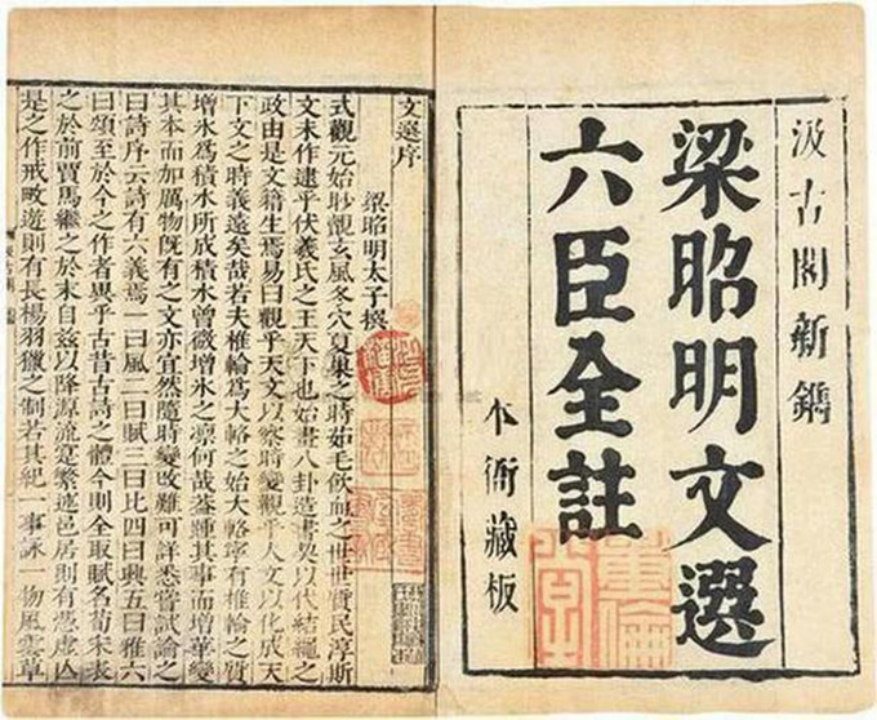 汲古閣新鐫
梁昭明文選
六臣全註
本衙藏板
文選序
梁昭明太子撰
式觀元始眇覿玄風冬穴夏巢之時茹毛飲血之世世質民淳斯
文未作逮乎伏羲氏之王天下也始畫八卦造書契以代結繩之
政由是文籍生焉易曰觀乎天文以察時變觀乎人文以化成天
下文之時義遠矣哉若夫椎輪爲大輅之始大輅寧有椎輪之質
增氷爲積水所成積水曾微增氷之凛何哉葢踵其事而增華變
其本而加厲物旣有之文亦宜然隨時變改難可詳悉嘗試論之
曰詩序云詩有六義焉一曰風二曰賦三曰比四曰興五曰雅六
曰頌至於今之作者異乎古昔古詩之體今則全取賦名荀宋表
之於前賈馬繼之於末自兹以降源流寔繁述邑居則有憑虛亾
是之作戒畋遊則有長楊羽獵之制若其紀一事詠一物風雲草